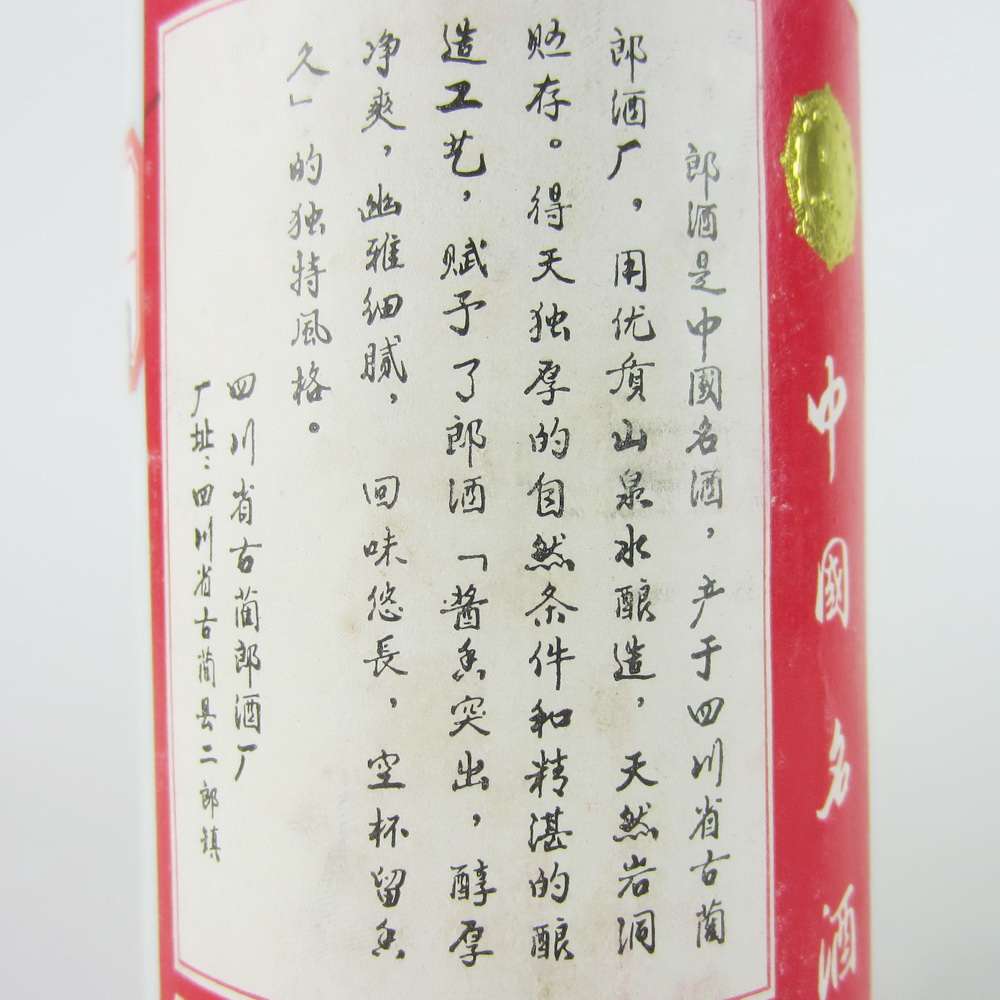 中國名酒
郎酒是中國名酒，产于四川省古蔺
郎酒厂，用优质山泉水酿造，天然岩洞
贮存。得天独厚的自然条件和精湛的酿
造工艺，赋予了郎酒「酱香突出，醇厚
净爽，幽雅细腻，回味悠長，空杯留香
久」的独特風格。
四川省古蔺郎酒厂
厂址：四川省古蔺县二郎镇